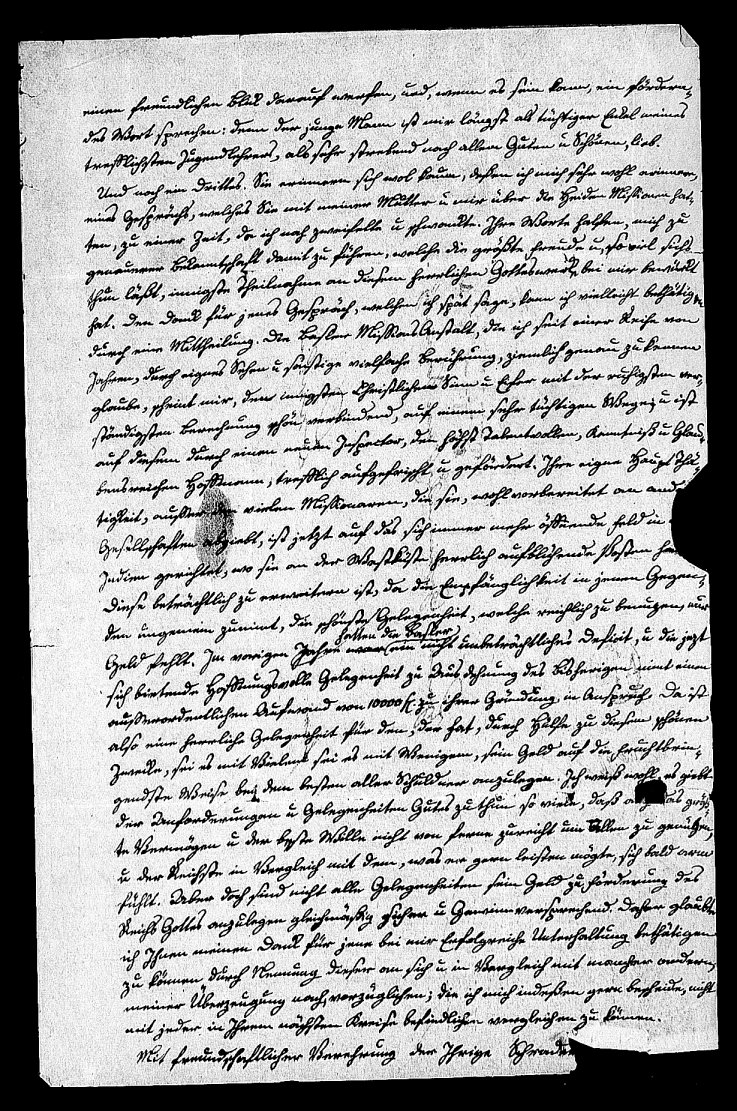 einen freundlichen Blick darauf werfen, und, wenn es sein kann, ein fördern-
des Wort sprechen: denn der junge Mann ist mir längst als tüchtiger Enkel meines
trefflichsten Jugendlehrers, als sehr strebend nach allem Guten u Schönen, lieb.
Und noch ein Drittes. Sie erinnern sich wol kaum, deßen ich mich sehr wohl erinnere,
eines Gesprächs, welches Sie mit meiner Mutter u mir über die Heiden Missionen hat-
ten, zu einer Zeit, da ich noch zweifelte u schwankte. Ihre Worte halfen, mich zu
genauerer Bekanntschaft damit zu führen, welche die größte Freude u, so viel sichs
thun läßt, innigste Theilnahme an diesem herrlichen Gotteswerk bei mir bewürkt
hat. Den Dank für jenes Gespräch, welchen ich spät sage, kann ich vielleicht bethätigen
durch eine Mittheilung. Die Basler MissionsAnstalt, die ich seit einer Reihe von
Jahren, durch eignes Sehen u sonstige vielfache Berührung, ziemlich genau zu kennen
glaube, scheint mir, den innigsten Christlichen Sinn u Eifer mit der ruhigsten ver-
ständigsten Berechnung schön verbindend, auf einem sehr tüchtigen Wege, u ist
auf diesem durch einen neuen Inspector, den höchst Talentvollen, Kenntniß u Glau-
bensreichen Hoffmann, trefflich aufgefrischt u gefördert. Ihre eigne Haupt Thä-
tigkeit, außer den vielen Missionaren, die sie, wohl vorbereitet an
Gesellschaften abgiebt, ist jetzt auf das sich immer mehr öffnende Feld in
Indien gerichtet, wo sie an der Westküste herrlich aufblühende Posten
Diese beträchtlich zu erweitern ist, da die Empfänglichkeit in jenen Gegen-
den ungemein zunimt, die schönste Gelegenheit, welche reichlich zu benuzen, nur
Geld fehlt. Im vorigen Jahre hatten die Basler ein nicht unbeträchtliches Deficit, u die jezt
sich bietende Hoffnungsvolle Gelegenheit zu Ausdehnung des Bisherigen nimt einen
außerordentlichen Aufwand von 10000 f. zu ihrer Gründung in Anspruch. Da ist
also eine herrliche Gelegenheit für den, der hat, durch Hülfe zu diesem schönen
Zwecke, sei es mit Vielem sei es mit Wenigem, sein Geld auf die Fruchtbrin-
gendste Weise bei dem besten aller Schuldner anzulegen. Ich weiß wohl, es giebt
der Anforderungen u Gelegenheiten Gutes zu thun so viele, daß auch das größ-
te Vermögen u der beste Wille nicht von ferne zureicht um Allen zu genügen,
u der Reichste in Vergleich mit dem, was er gern leisten mögte, sich bald arm
fühlt. Aber doch sind nicht alle Gelegenheiten sein Geld zu Förderung des
Reichs Gottes anzulegen gleichmäßig sicher u Gewinnversprechend. Daher glaubte
ich Ihnen meinen Dank für jene bei mir Erfolgreiche Unterhaltung bethätigen
zu können durch Nennung dieser an sich u in Vergleich mit mancher andern,
meiner Überzeugung nach, vorzüglichen; die ich mich indeßen gern bescheide, nicht
mit jeder in Ihrem nächsten Kreise befindlichen vergleichen zu können.
Mit freundschaftlicher Verehrung der Ihrige Schrader